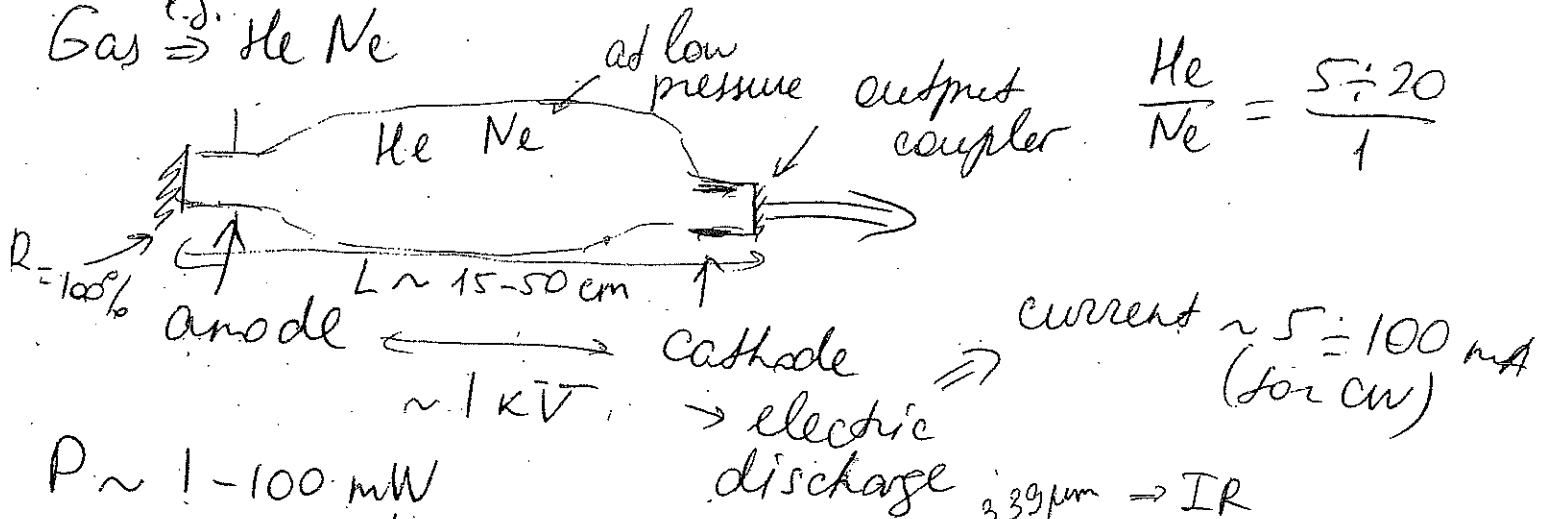 Gas e.g. ⇒ He Ne
at low pressure
output coupler
He/Ne = 5÷20/1
He Ne
R = 100%
L ~ 15-50 cm
anode ⟷ cathode
~ 1 kV
→ electric discharge
⇒ current ~ 5÷100 mA
(for CW)
P ~ 1-100 mW
3.39 μm ⇒ IR